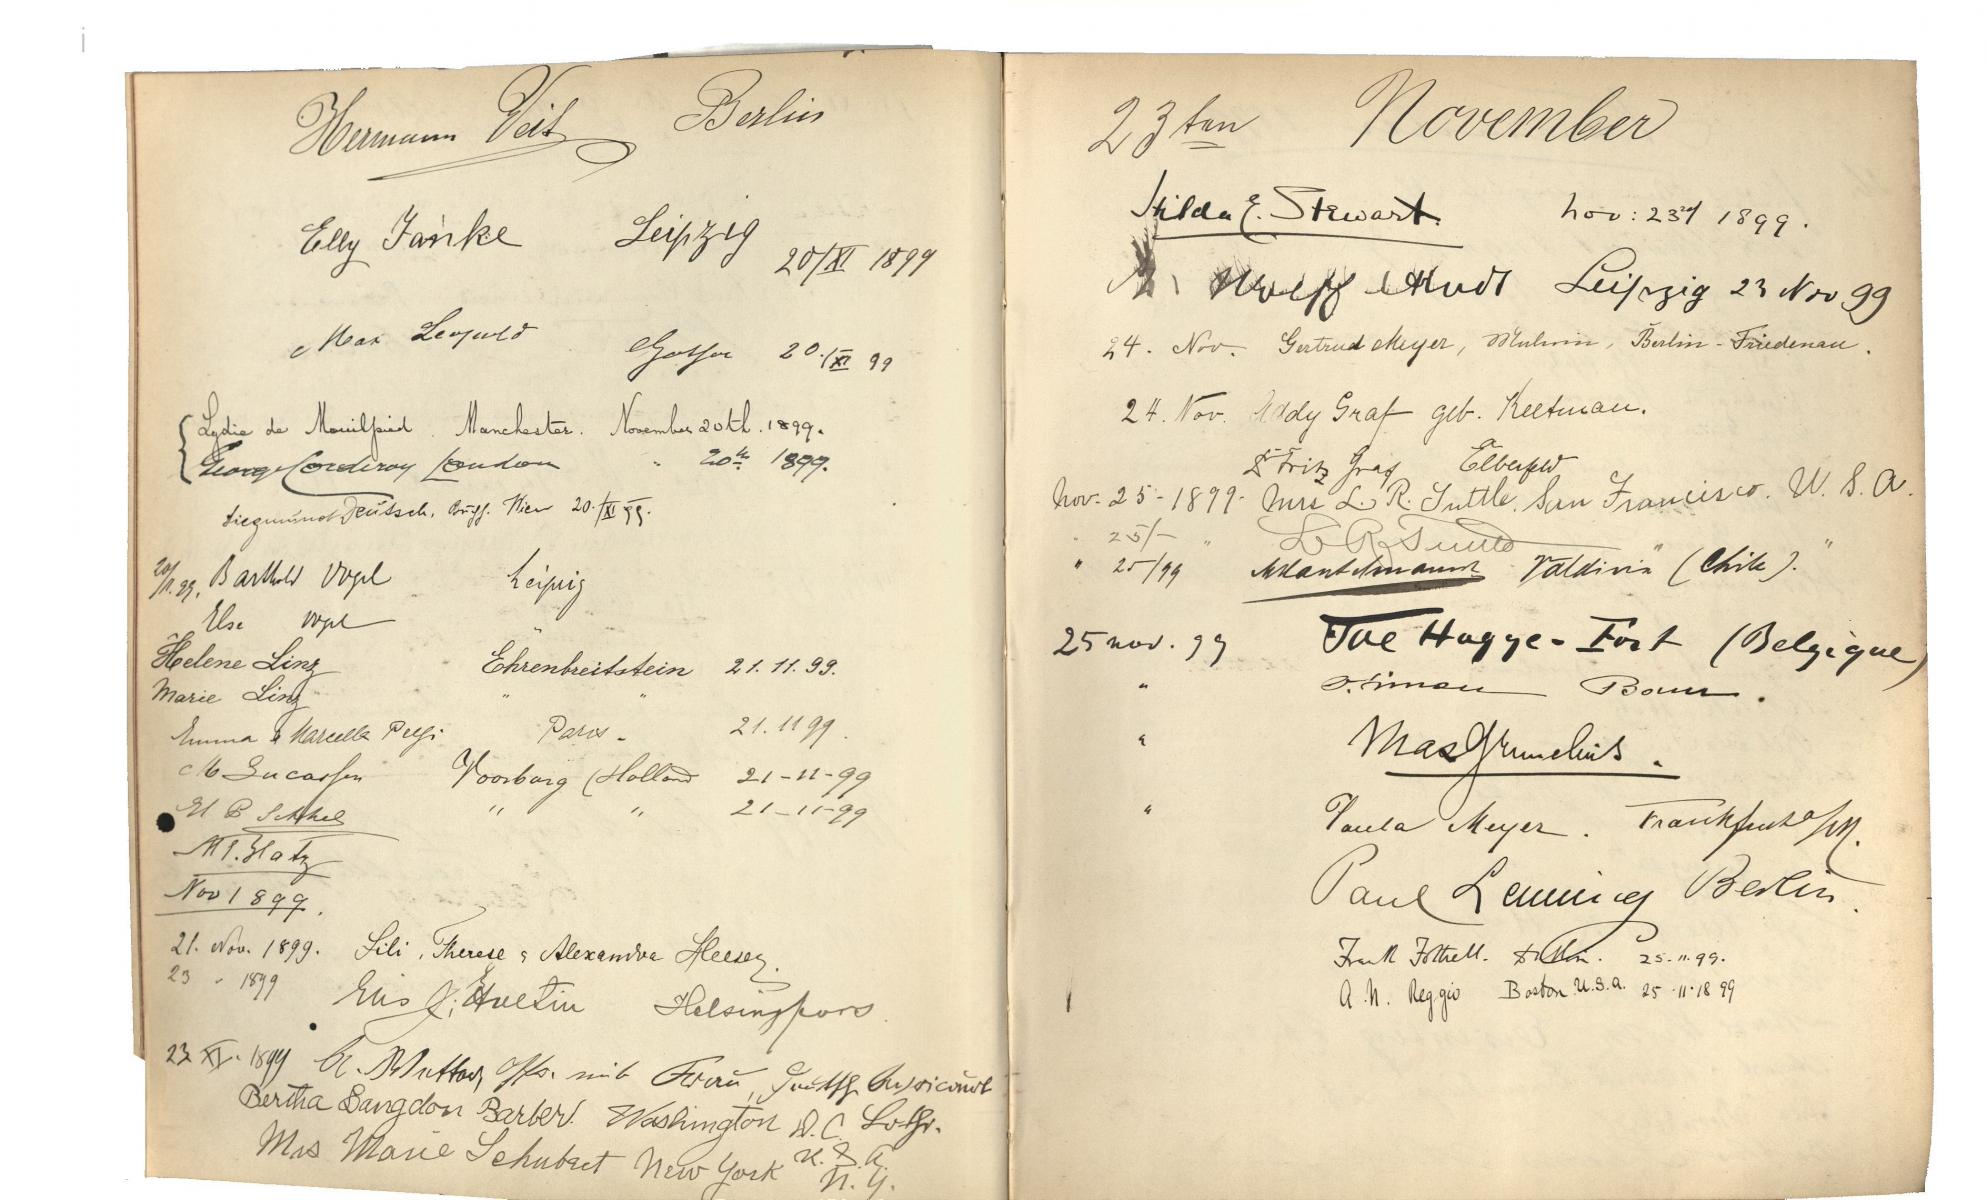 Hermann Veit Berlin
Elly Janke Leipzig
20/XI 1899
Max Leopold Gotha 20./XI 99
Lydia de Mouilpied. Manchester. November 20th. 1899.
George Corderoy London " 20th 1899.
Siegmund Deutsch, Wien 20./XI 99.
20/11.99. Barthold Vogel Leipzig
Else Vogel "
Helene Linz Ehrenbreitstein 21.11.99.
Marie Linz " "
Emma & Marcella Paris - 21.11 99.
M Lucassen Voorburg (Holland 21-11-99
" " 21-11-99
Nov 1899.
21. Nov. 1899. Lili, Therese & Alexandra
23 " 1899 Elis J. Hultin Helsingfors
23 XI. 1899 mit Frau,
Bertha Langdon Barber. Washington D.C. Lothr.
U.S.A.
Mrs Marie Schubert New York N.Y.
23ten November
Hilda E. Stewart. Nov: 23rd 1899.
Wolff Arndt Leipzig 23 Nov 99
24. Nov. Gertrud Meyer, Berlin-Friedenau.
24. Nov. Addy Graf geb. Keetman.
Dr Fritz Graf Elberfeld
Nov. 25-1899- Mrs L. R. Tuttle. San Francisco. U. S. A.
" 25/- " L R Tuttle " "
" 25/99 Valdivia (Chile).
25 nov. 99 (Belgique)
" Bonn.
" Max Grunelius.
" Paula Meyer. Frankfurt a/M.
Paul Berlin.
Frank 25-11-99.
A. N. Reggio Boston U.S.A. 25-11-1899